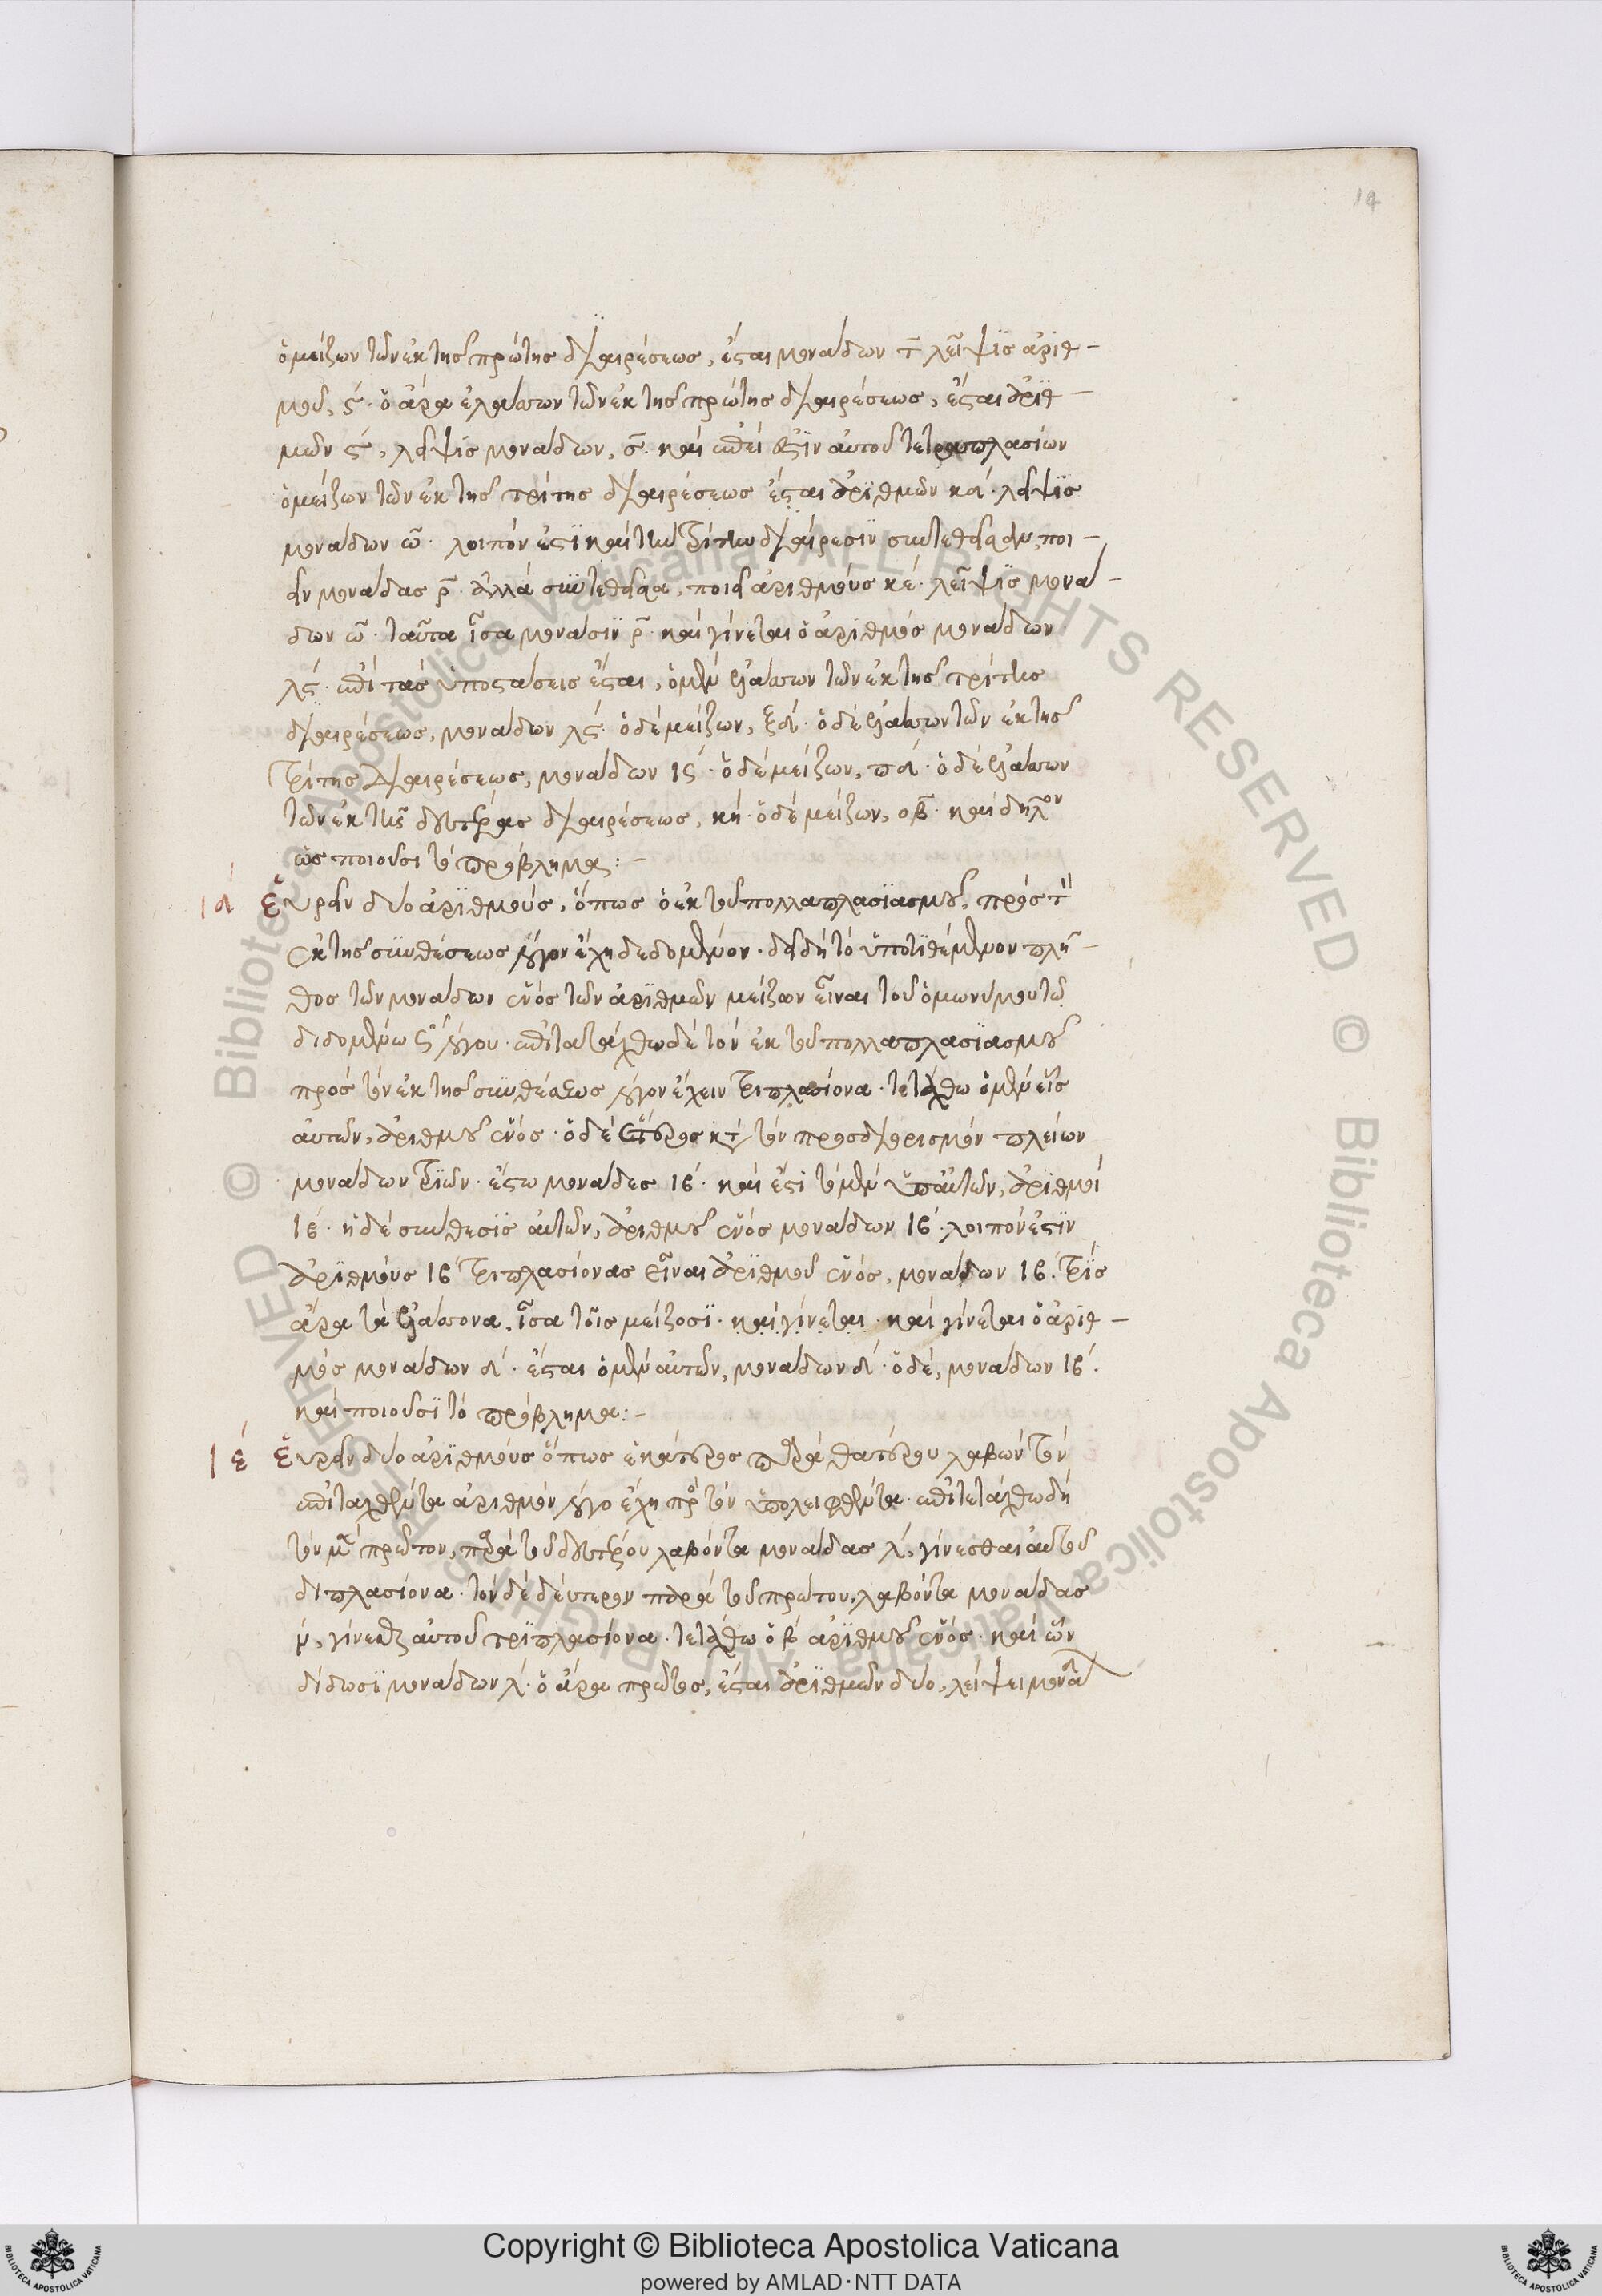 14
ὁ μείζων τῶν ἐκ τῆς πρώτης διαιρέσεως, ἔσται μονάδων τ̅ λεῖψις ἀριθ-
μοῦ, ϛ́· ὁ ἄρα ἐλάσσων τῶν ἐκ τῆς πρώτης διαιρέσεως, ἔσται ἀριθ-
μῶν ϛ́, λεῖψις μονάδων, σ̅· καὶ ἐπεί ἐστιν αὐτοῦ τετραπλασίων
ὁ μείζων τῶν ἐκ τῆς τρίτης διαιρέσεως ἔσται ἀριθμῶν κδ́· λεῖψις
μονάδων ω̅· λοιπόν ἐστι καὶ τὴν τρίτην διαίρεσιν συντεθεῖσαν, ποι-
εῖν μονάδας ρ̅· ἀλλὰ συντεθεῖσα, ποιεῖ ἀριθμοὺς κέ· λεῖψις μονά-
δων ω̅· ταῦτα ἴσα μονάσιν ρ̅· καὶ γίνεται ὁ ἀριθμὸς μονάδων
λϛ́· ἐπὶ τὰς ὑποστάσεις ἔσται, ὁ μὲν ἐλάσσων τῶν ἐκ τῆς πρώτης
διαιρέσεως, μονάδων λϛ́· ὁ δὲ μείζων, ξδ́· ὁ δὲ ἐλάσσων τῶν ἐκ τῆς
τρίτης διαιρέσεως, μονάδων ιϛ́· ὁ δὲ μείζων, πδ́· ὁ δὲ ἐλάσσων
τῶν ἐκ τῆς δευτέρας διαιρέσεως, κή· ὁ δὲ μείζων, οβ̅· καὶ δῆλον
ὡς ποιοῦσι τὸ πρόβλημα:-
ιδ́ εὑρεῖν δύο ἀριθμούς, ὅπως ὁ ἐκ τοῦ πολλαπλασιασμοῦ, πρὸς τὸν
ἐκ τῆς συνθέσεως λόγον ἔχῃ δεδομένον· δεῖ δὴ τὸ ὑποτιθέμενον πλῆ-
θος τῶν μονάδων ἑνὸς τῶν ἀριθμῶν μείζων εἶναι τοῦ ὁμωνύμου τῷ
διδομένῳ λόγου· ἐπιτετάχθω δὲ τὸν ἐκ τοῦ πολλαπλασιασμοῦ
πρὸς τὸν ἐκ τῆς συνθέσεως λόγον ἔχειν τριπλασίονα· τετάχθω ὁ μὲν εἷς
αὐτῶν, ἀριθμοῦ ἑνός· ὁ δὲ ἕτερος κατὰ τὸν προσδιορισμὸν πλείων
μονάδων τριῶν· ἔστω μονάδες ιβ́· καὶ ἔστι τὸ μὲν ὑπ' αὐτῶν, ἀριθμοὶ
ιβ́· ἡ δὲ σύνθεσις αὐτῶν, ἀριθμοῦ ἑνὸς μονάδων ιβ́· λοιπόν ἐστιν
ἀριθμοὺς ιβ́ τριπλασίονας εἶναι ἀριθμοῦ ἑνός, μονάδων ιβ́· τρὶς
ἄρα τὰ ἐλάσσονα, ἴσα τοῖς μείζοσι· καὶ γίνεται· καὶ γίνεται ὁ ἀριθ-
μὸς μονάδων δ́· ἔσται ὁ μὲν αὐτῶν, μονάδων δ́· ὁ δέ, μονάδων ιβ́·
καὶ ποιοῦσι τὸ πρόβλημα:-
ιέ εὑρεῖν δύο ἀριθμοὺς ὅπως ἑκάτερος παρὰ θατέρου λαβὼν τὸν
ἐπιταχθέντα ἀριθμὸν λόγο ἔχῃ πρὸς τὸν ὑπολειφθέντα· ἐπιτετάχθω δὴ
τὸν μὲν πρῶτον, παρὰ τοῦ δευτέρου λαβόντα μονάδας λ́, γίνεσθαι αὐτοῦ
διπλασίονα· τὸν δὲ δεύτερον παρὰ τοῦ πρώτου, λαβόντα μονάδας
ν́, γίνεσθαι αὐτοῦ τριπλασίονα· τετάχθω ὁ β́ ἀριθμοῦ ἑνός· καὶ ὧν
δίδωσι μονάδων λ́· ὁ ἄρα πρῶτος, ἔσται ἀριθμῶν δύο, λείψει μονα
Copyright © Biblioteca Apostolica Vaticana
powered by AMLAD·NTT DATA